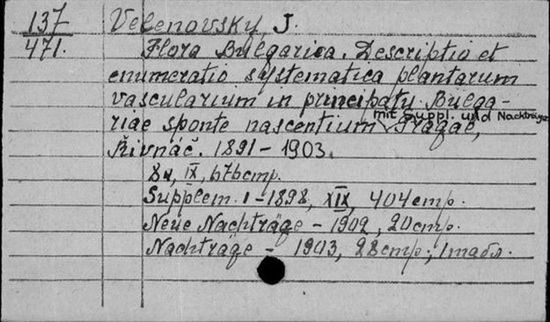 137
471.
Velenovsky, J.
Flora Bulgarica. Descriptio et
enumeratio systematica plantarum
vascularium in principatu Bulga-
riae sponte nascentium mit Suppl. und Nachträgen Pragae,
Řivnáč. 1891-1903.
8º, IX, 676 стр.
Supplem. I-1898, XIX, 404 стр.
Neue Nachträge - 1902, 20 стр.
Nachträge - 1903, 28 стр.; 1 табл.